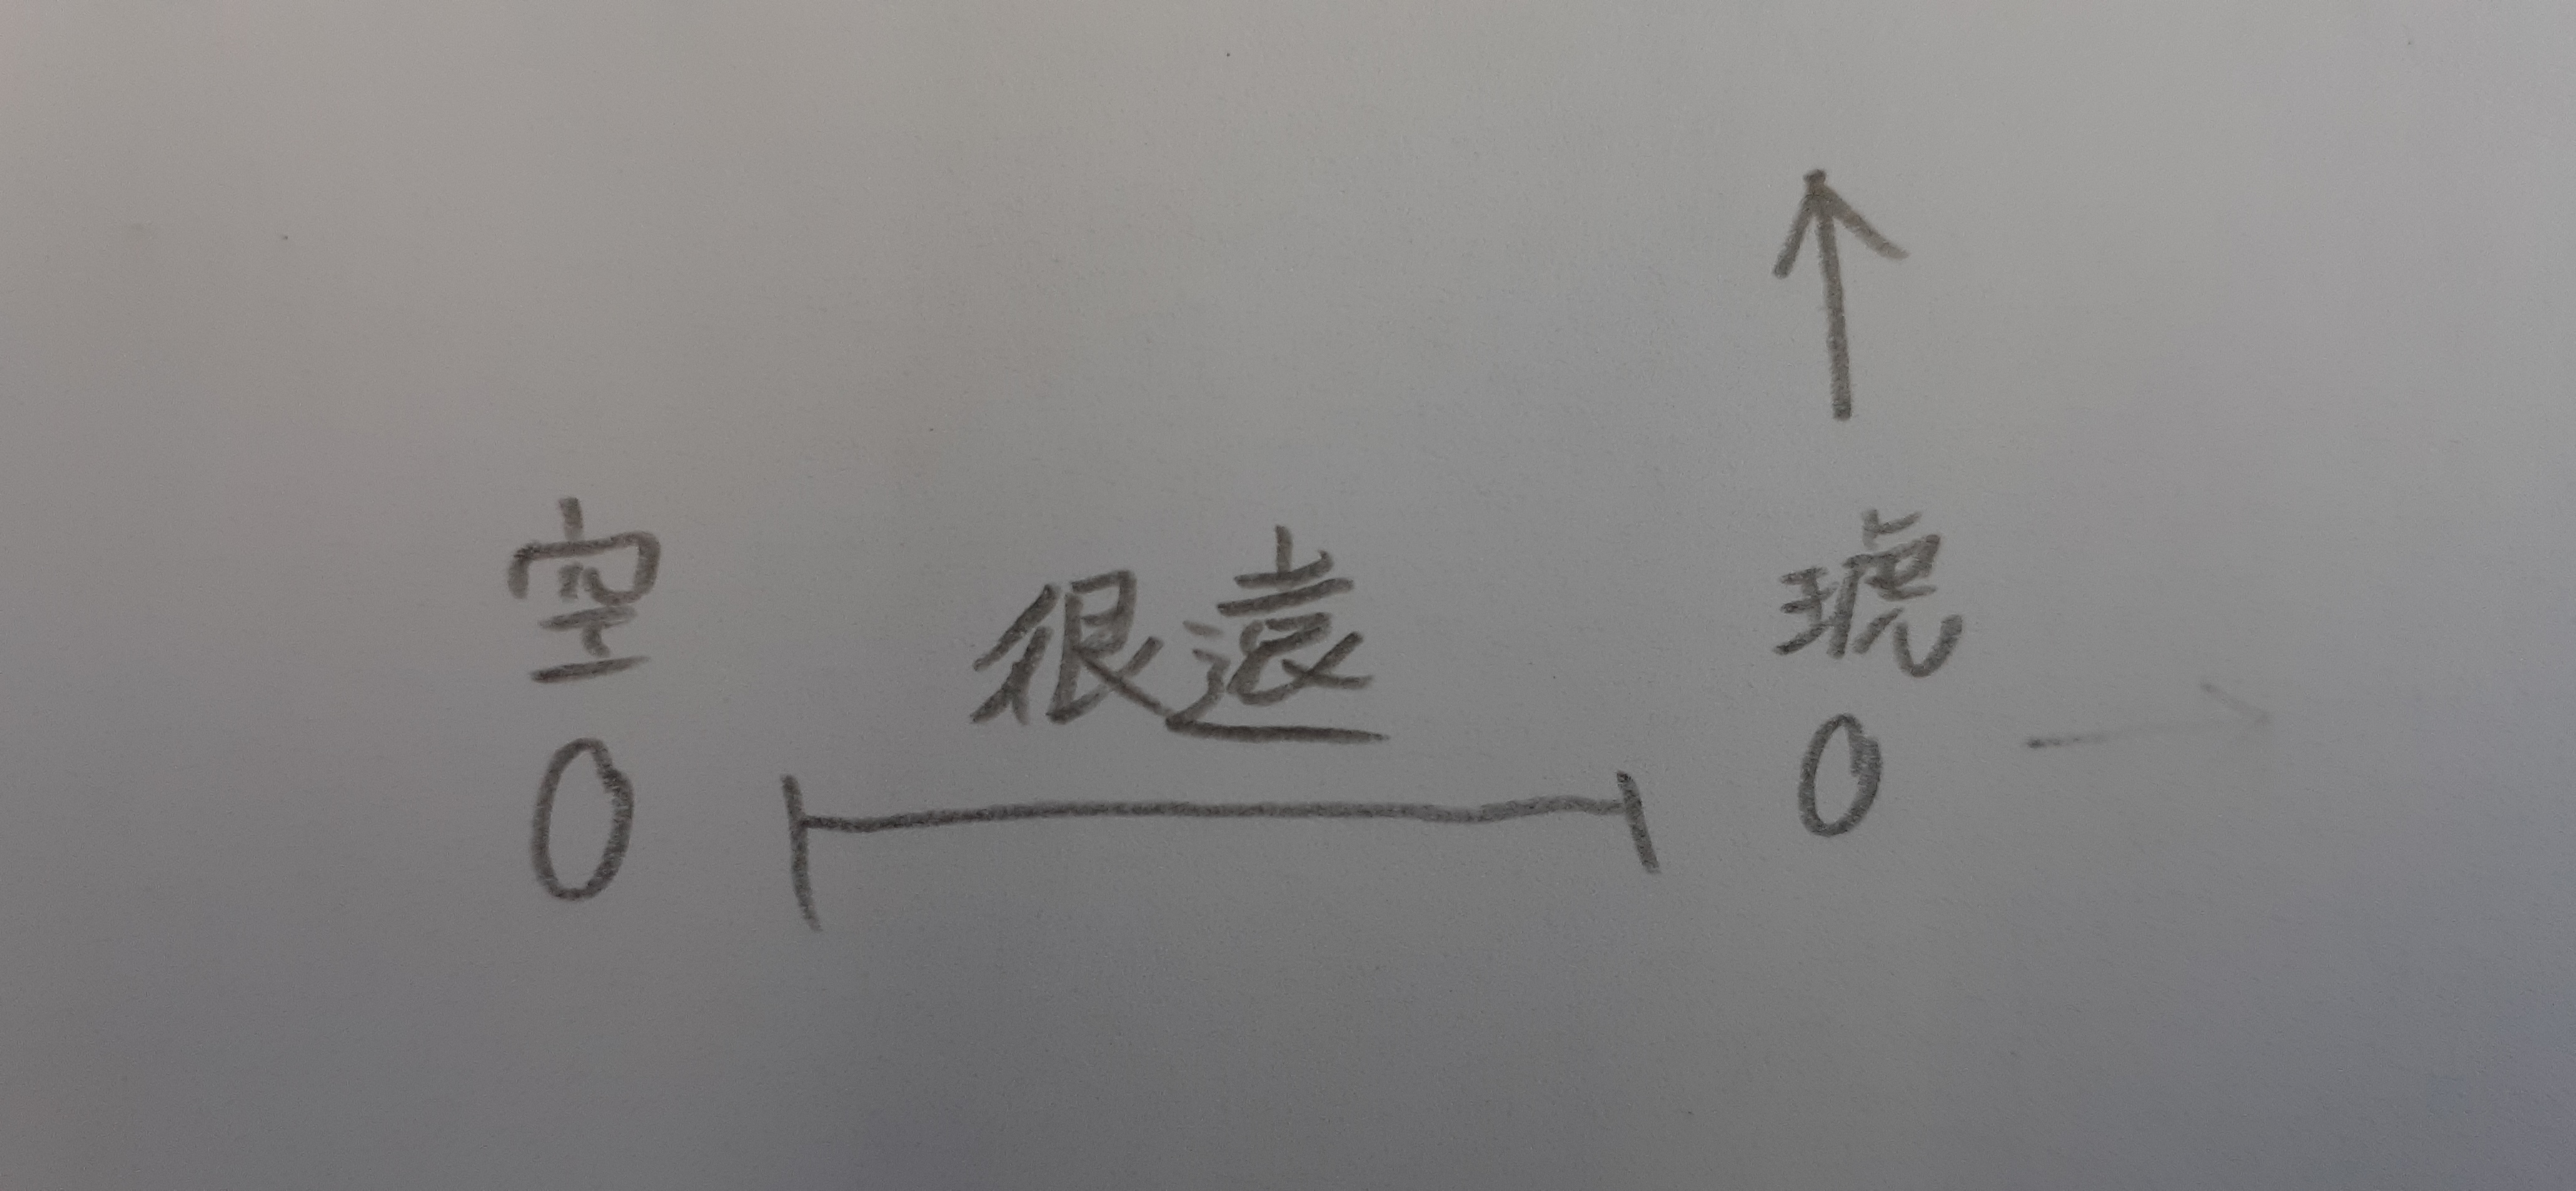 空 很遠 琥